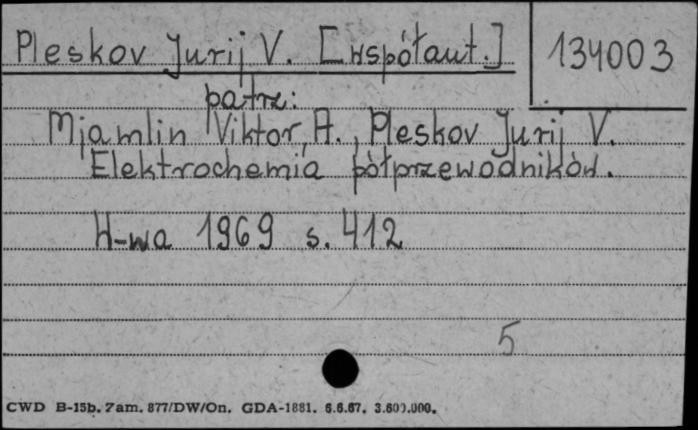 Pleskov Jurij V. [współaut.] 134003
patrz:
Mjamlin Viktor, A., Pleskov Jurij V.
Elektrochemia półprzewodników.
W-wa 1969 s. 412
5
CWD B-15b. Zam. 877/DW/On. GDA-1881. 6.6.67. 3.600.000.